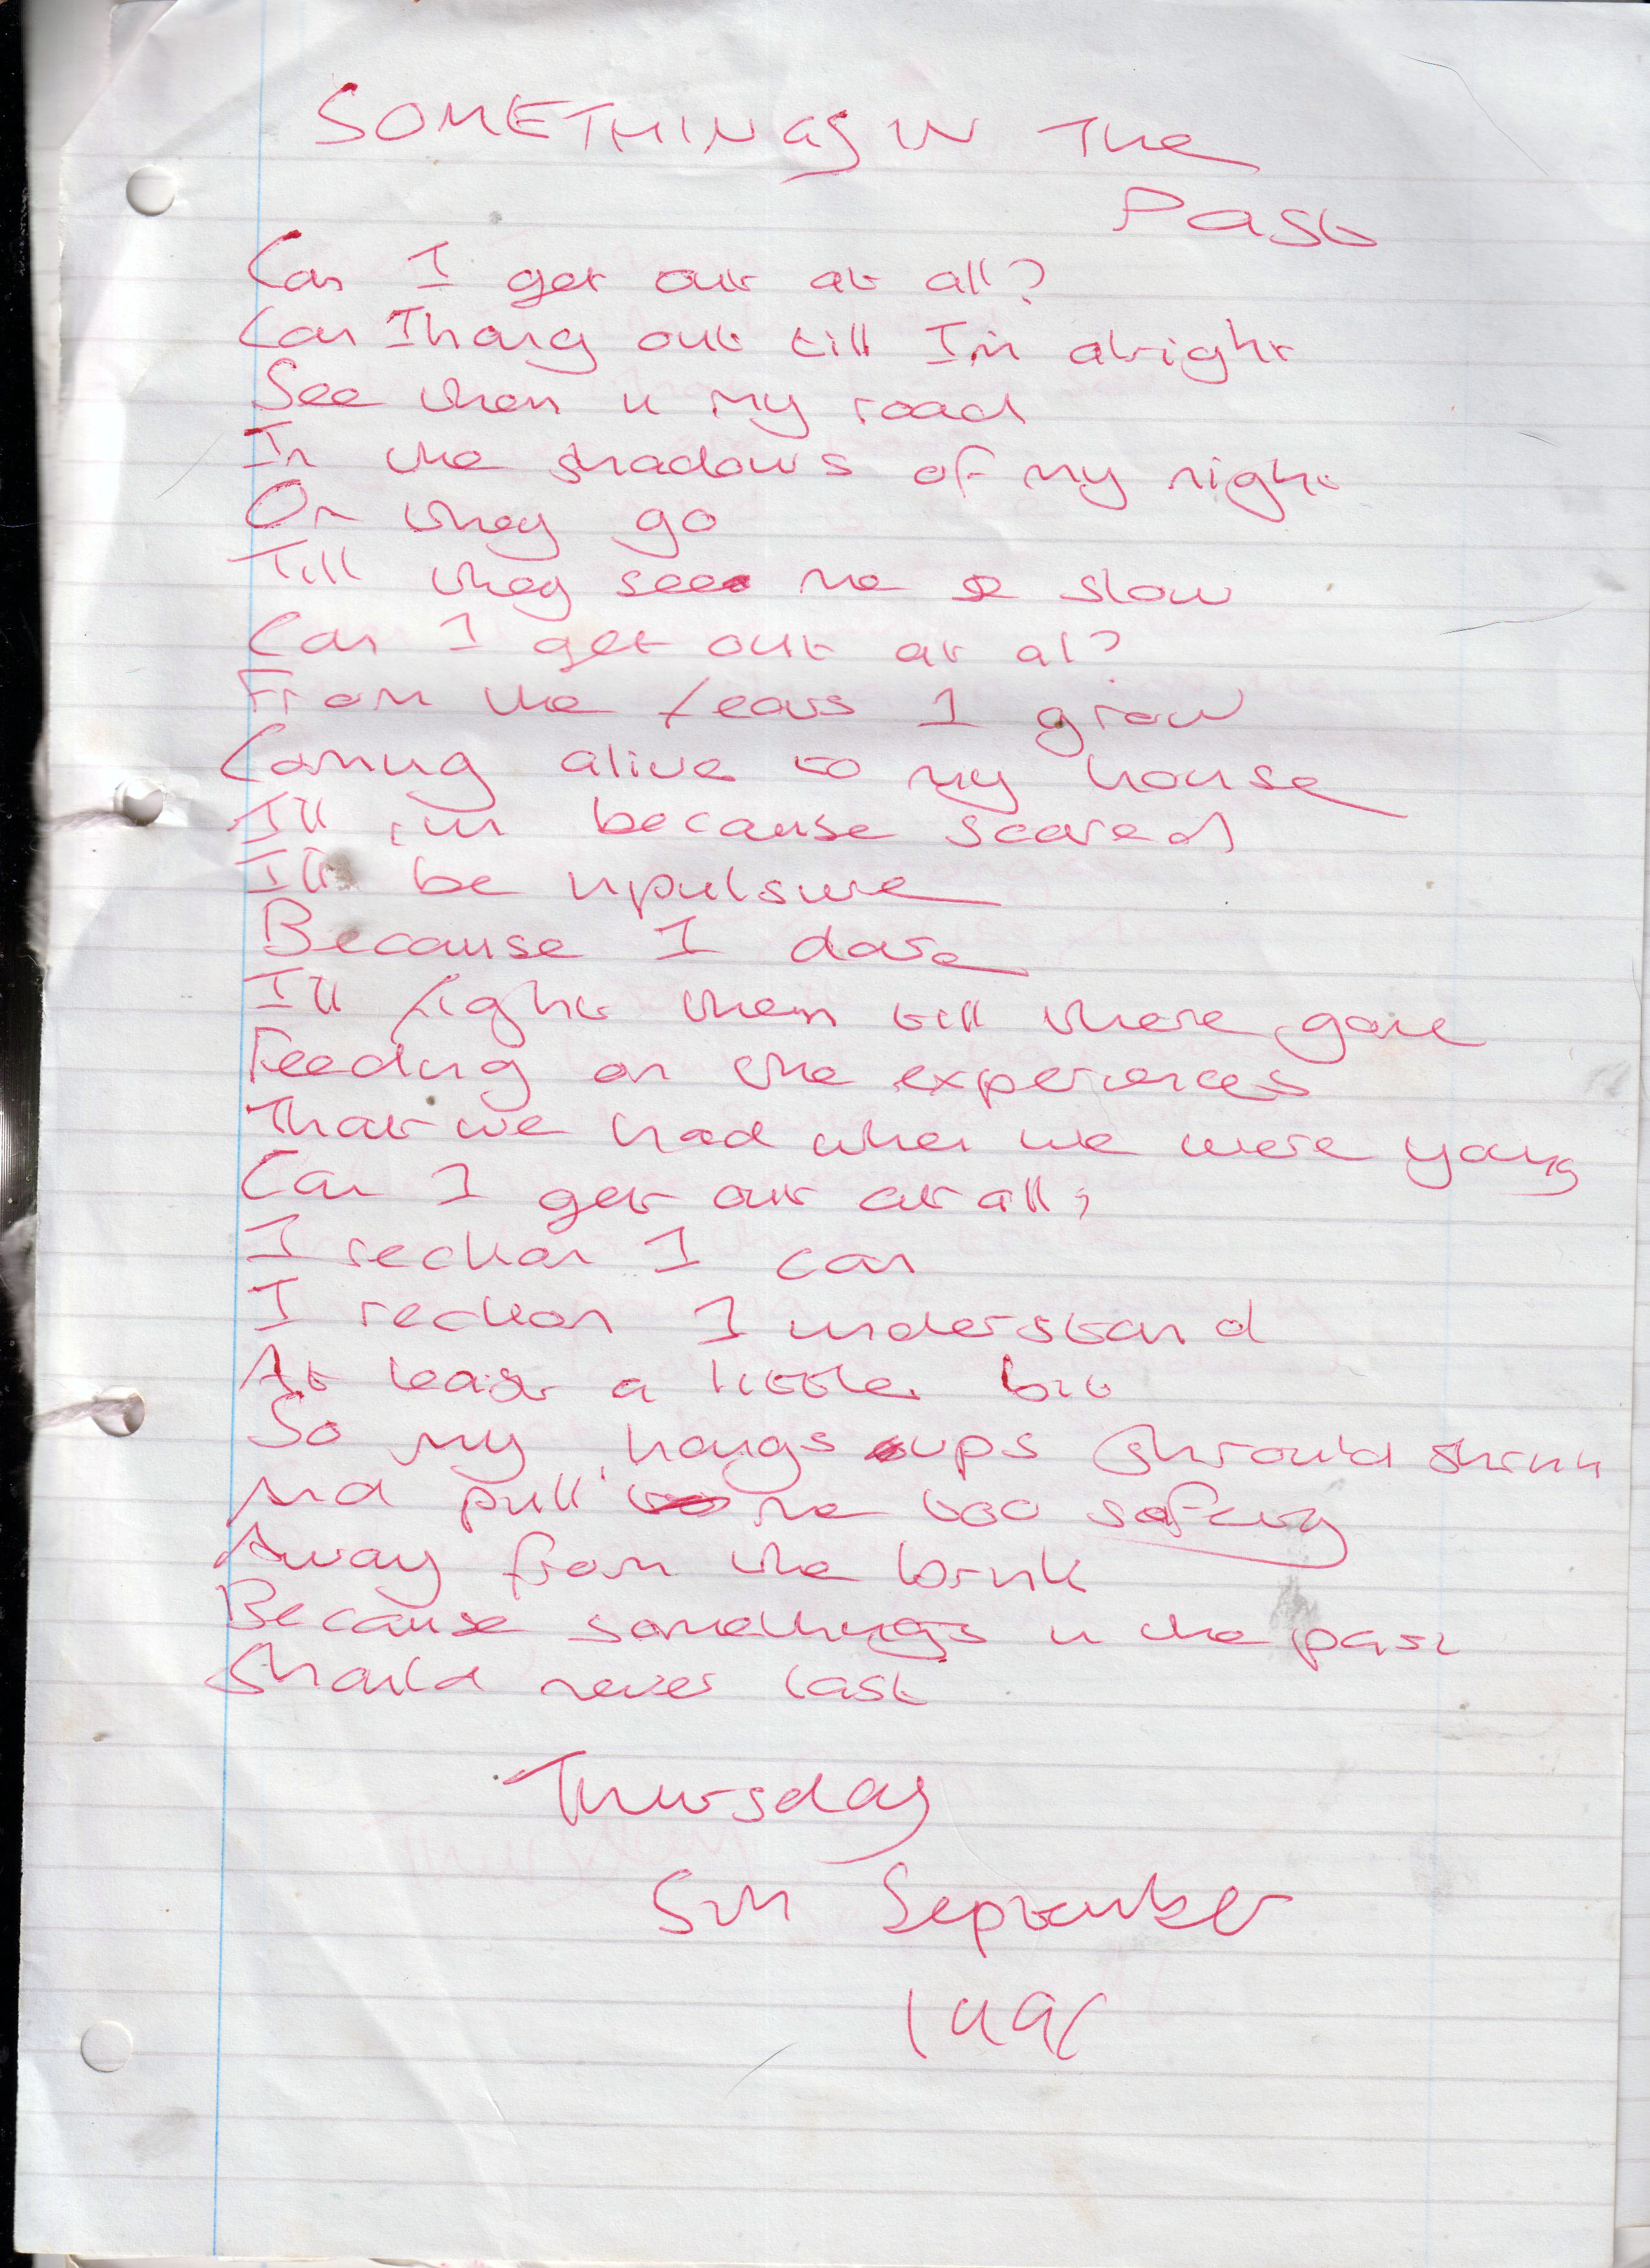 SOMETHINGS IN The
Past
Can I get out at all?
Can I hang out till Im alright
See them in my road
In the shadows of my night
On they go
Till they see me so slow
Can I get out at al?
From the fears I grow
Coming alive to my house
I'll run because scared
I'll be impulsive
Because I dare
I'll fight them till there gone
Feeding on the experiences
That we had when we were young
Can I get out at all?
I reckon I can
I reckon I understand
At least a little bit
So my hangs ups should shrink
And pull me too safety
Away from the brink
Because somethings in the past
Should never last
Thursday
5th September